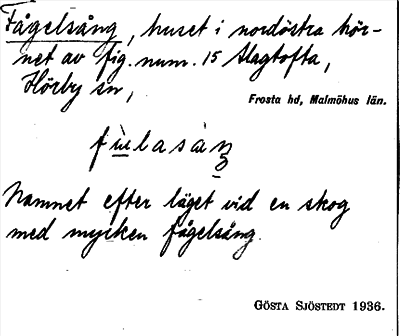 Fågelsång, huset i nordöstra hör-
net av fig. num. 15 Slagtofta,
Hörby sn,
Frosta hd, Malmöhus län.
Namnet efter läget vid en skog
med mycken fågelsång.
GÖSTA SJÖSTEDT 1936.